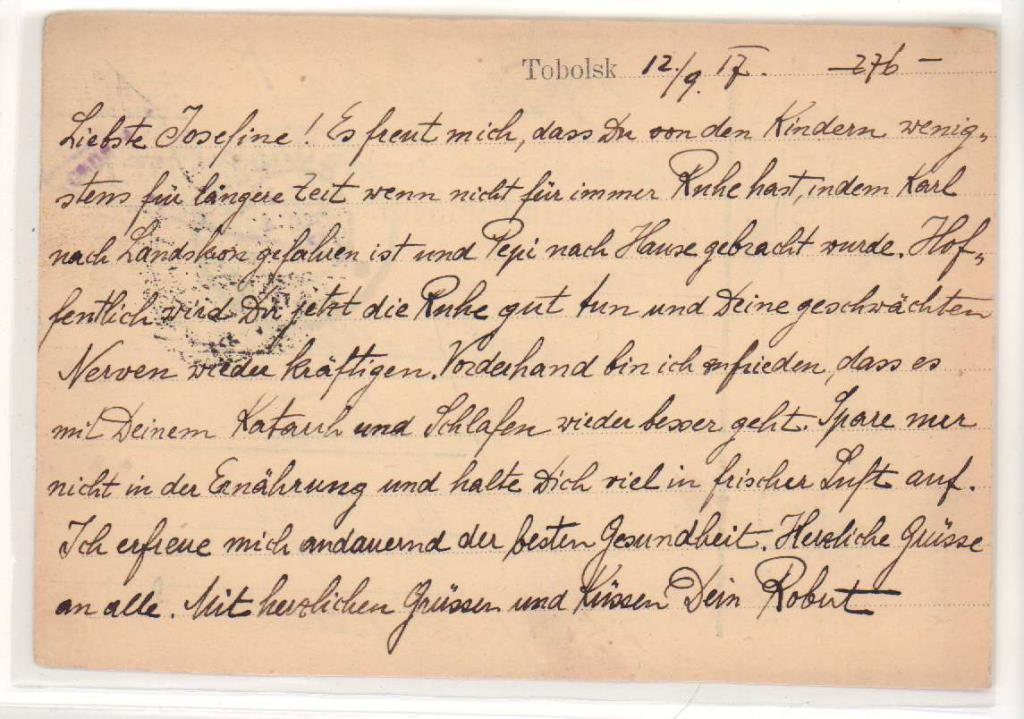 Tobolsk 12./9. 17. – 276 –
Liebste Josefine! Es freut mich, dass Du von den Kindern wenig-
stens für längere Zeit wenn nicht für immer Ruhe hast, indem Karl
nach Landskron gefahren ist und Pepi nach Hause gebracht wurde. Hof-
fentlich wird Dir jetzt die Ruhe gut tun und Deine geschwächten
Nerven wieder kräftigen. Vorderhand bin ich zufrieden, dass es
mit Deinem Katarrh und Schlafen wieder besser geht. Spare nur
nicht in der Ernährung und halte Dich viel in frischer Luft auf.
Ich erfreue mich andauernd der besten Gesundheit. Herzliche Grüsse
an alle. Mit herzlichen Grüssen und Küssen Dein Robert